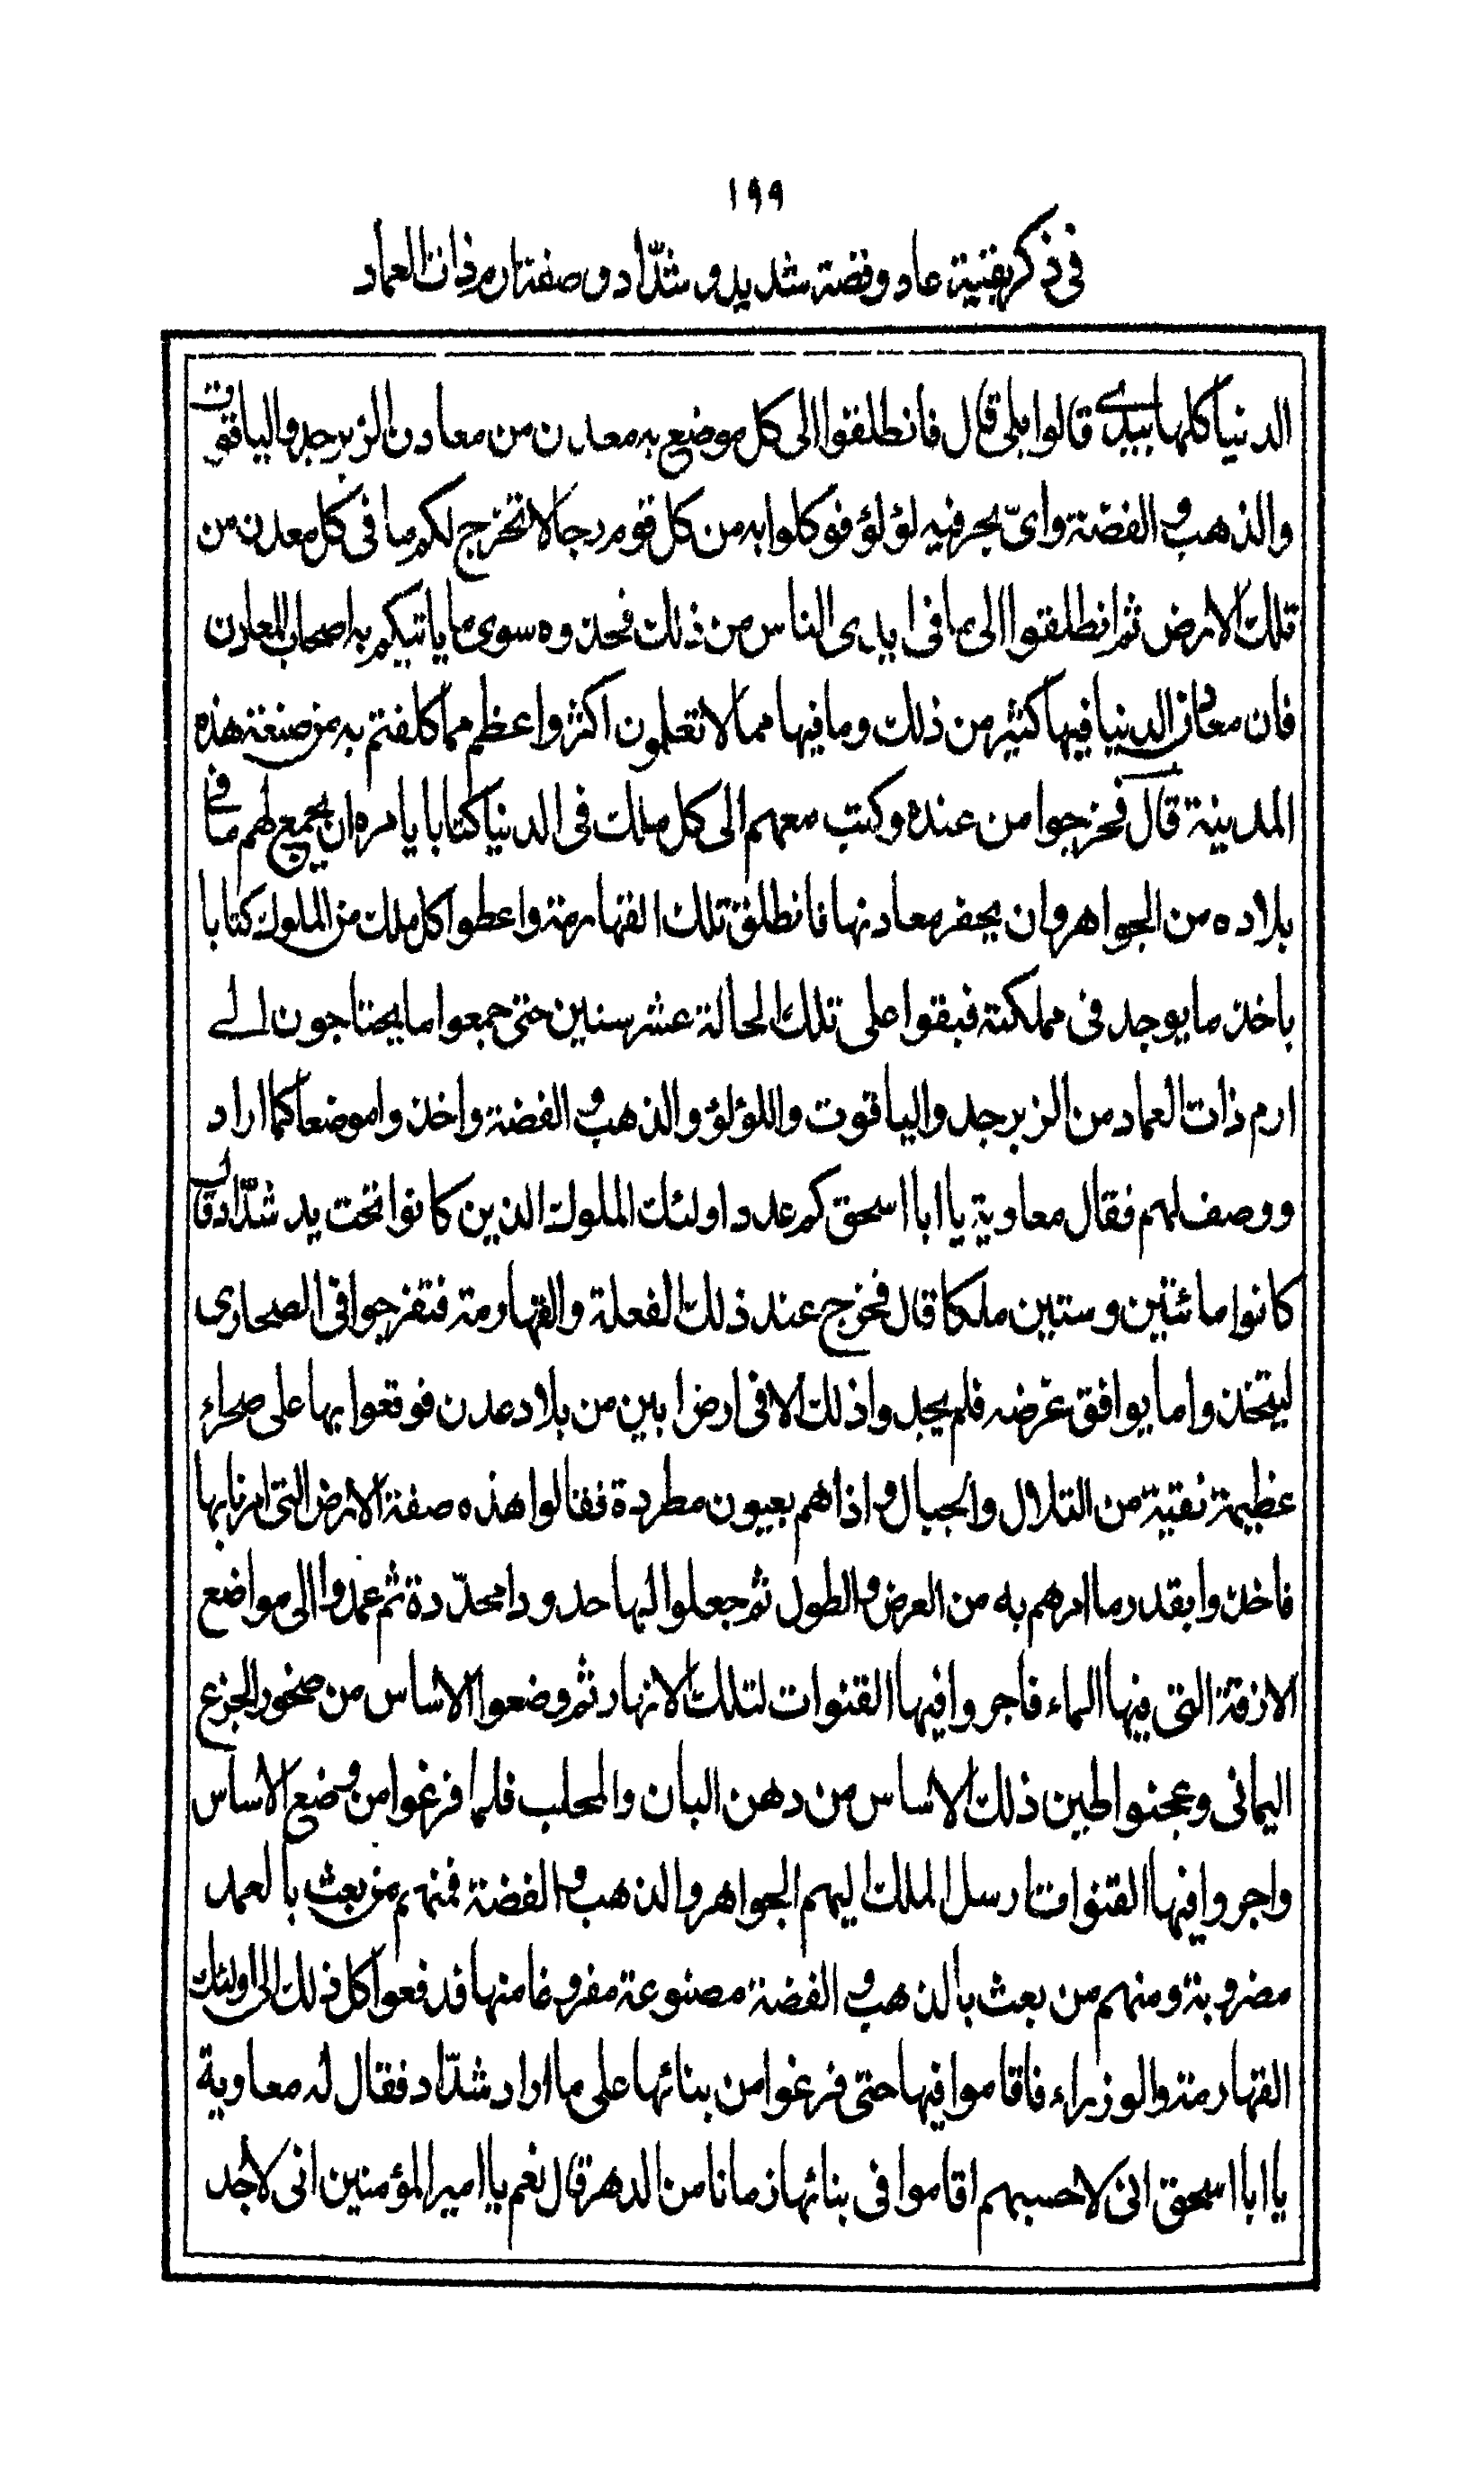 ١٩٩
فى ذكر بقية عاد وقصة شديد و شدّاد و صفة ارم ذات العماد
الدنيا كلها بيدى قالوا بلى قال فانطلقوا الى كل موضع به معدن من معادن الزبرجد والياقوت
والذهب والفضة واىّ بحر فيه لؤلؤ فوكلوا به من كل قوم رجالا تخرج لكم ما فى كل معدن من
تلك الارض ثم انطلقوا الى ما فى ايدى الناس من ذلك فخذوه سوى ما ياتيكم به اصحاب المعادن
فان معادن الدنيا فيها كثير من ذلك وما فيها مما لا تعلمون اكثر واعظم مما كلفتم به من صنعة هذه
المدينة قال فخرجوا من عنده وكتب معهم الى كل ملك فى الدنيا كتابا يامره ان يجمع لهم ما فى
بلاده من الجواهر وان يحفر معادنها فانطلق تلك القهارمة واعطوا كل ملك من الملوك كتابا
باخذ ما يوجد فى مملكته فبقوا على تلك الحالة عشر سنين حتى جمعوا ما يحتاجون الى
ارم ذات العماد من الزبرجد والياقوت واللؤلؤ والذهب والفضة واخذوا موضعا كما اراد
ووصف لهم فقال معاوية يا ابا اسحق كم عدد اولئك الملوك الذين كانوا تحت يد شدّاد قال
كانوا مائتين وستين ملكا قال فخرج عند ذلك الفعلة والقهارمة فتفرجوا فى الصحارى
ليتخذوا ما يوافق غرضه فلم يجدوا ذلك الا فى ارض ابين من بلاد عدن فوقعوا بها على صحراء
عظيمة نقية من التلال والجبال واذا هم بعيون مطردة فقالوا هذه صفة الارض التى امرنا بها
فاخذوا بقدر ما امرهم به من العرض والطول ثم جعلوا لها حدودا محدّدة ثم عمدوا الى مواضع
الازقة التى فيها الماء فاجروا فيها القنوات لتلك الانهار ثم وضعوا الاساس من صخور الجزع
اليمانى وعجنوا طين ذلك الاساس من دهن البان والمحلب فلما فرغوا من وضع الاساس
واجروا فيها القنوات ارسل الملك اليهم الجواهر والذهب والفضة فمنهم من بعث بالعمد
مضروبة ومنهم من بعث بالذهب والفضة مصنوعة مفروغا منها فدفعوا كل ذلك الى اولئك
القهارمة والوزراء فاقاموا فيها حتى فرغوا من بنائها على ما اراد شدّاد فقال له معاوية
يا ابا اسحق انى لاحسبهم اقاموا فى بنائها زمانا من الدهر قال نعم يا امير المؤمنين انى لاجد